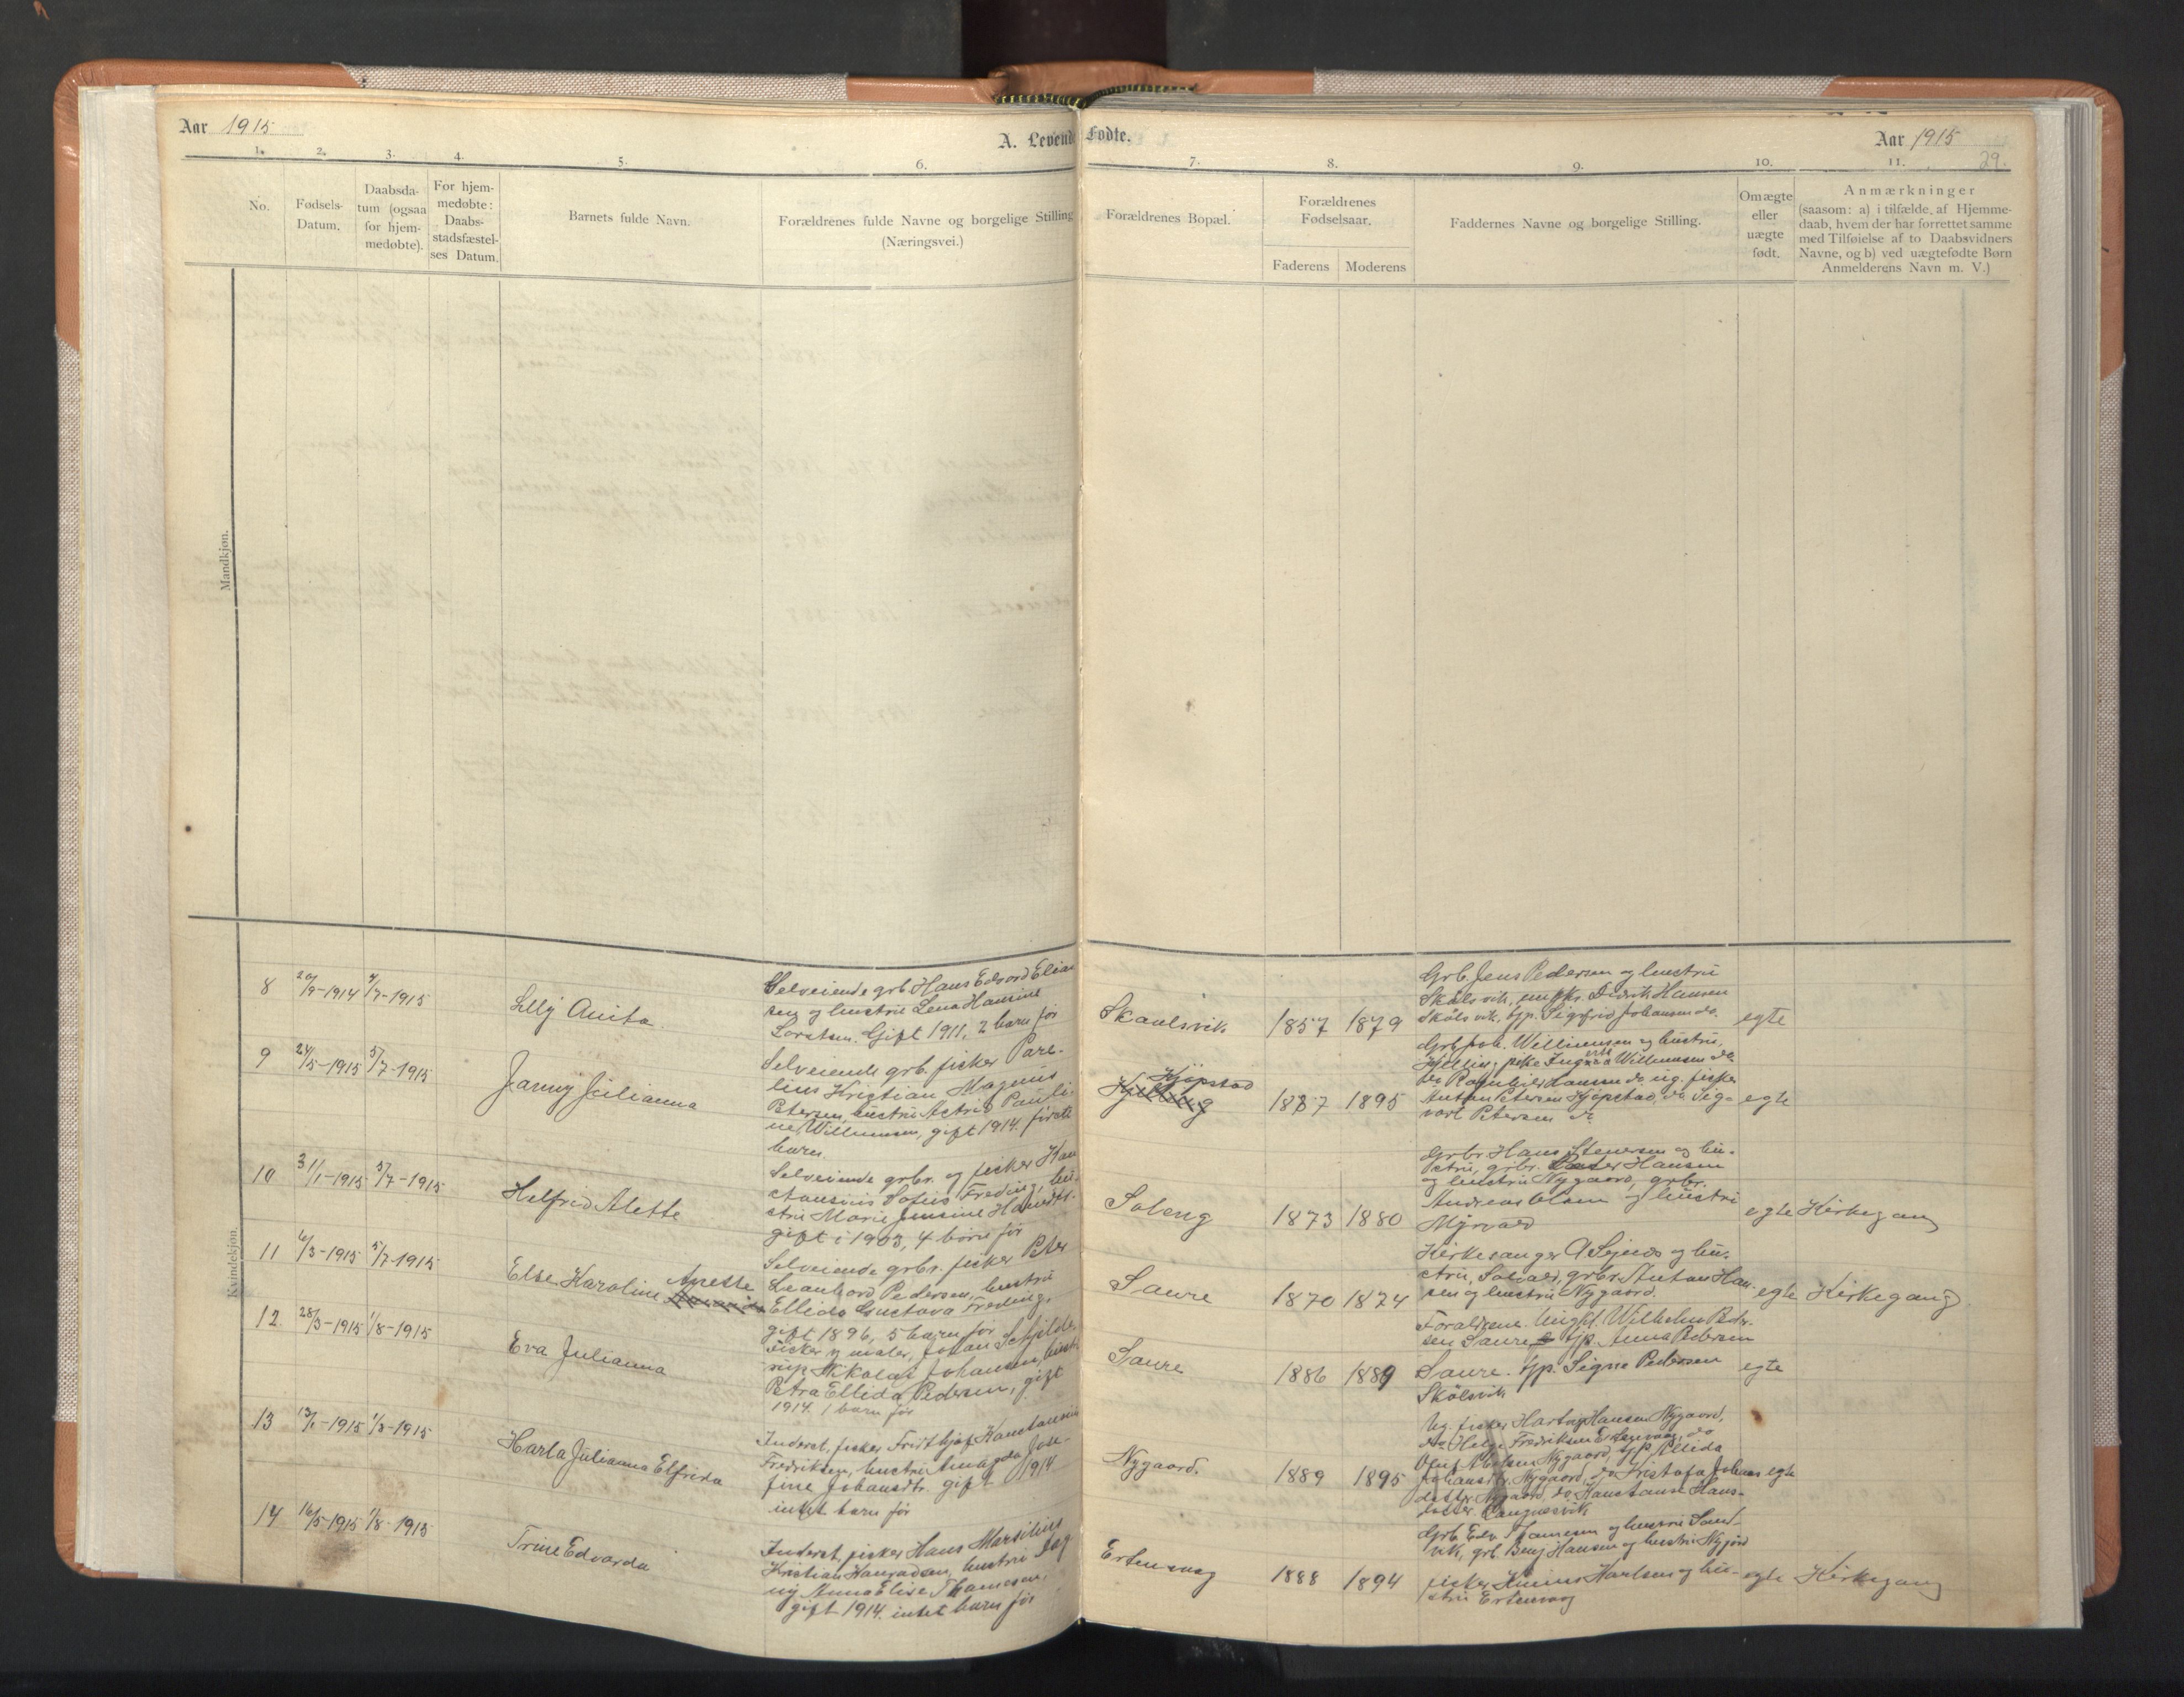 Aar 1915
A. Levende
Fødte.
Aar 1915
29.
1. 2. 3. 4. 5. 6. 7. 8. 9. 10. 11.
No.
Fødsels-
Datum.
Daabsda-
tum (ogsaa
for hjem-
medøbte).
For hjem-
medøbte:
Daabs-
stadsfæstel-
ses Datum.
Barnets fulde Navn.
Forældrenes fulde Navne og borgelige Stilling
(Næringsvei.)
Forældrenes Bopæl.
Forældrenes
Fødselsaar.
Faderens Moderens
Faddernes Navne og borgelige Stilling.
Om ægte
eller
uægte
født.
Anmærkninger
(saasom: a) i tilfælde af Hjemme-
daab, hvem der har forrettet samme
med Tilføielse af to Daabsvidners
Navne, og b) ved uægtefødte Børn
Anmelderens Navn m. V.)
Mandkjøn.
Kvindekjøn.
8
20/9-1914
4/7-1915
Lilly Anita
Selveiende grb. Hans Edvard Elias
sen og hustru Lena Hansine
Gift 1911, 2 barn før
Skaulsvik
1857 1879
Grb Jens Pedersen og hustru
Skålsvik, ungkr. Didrik Hansen
Skålsvik, tjp. Sigfrid Johansen do.
egte
9
24/5-1915 5/7-1915
Janny Julianna
Selveiende grb. fisker Pare-
lius Kristian Magnus
Petersen, hustru Astrid Pauli-
ne Willumsen, gift 1914. første
barn.
Kjøpstad
Kjelling
1887 1895
Grb Joh. Willumsen og hustru,
Kjelling, pike Ingvarda Willumsen do
do Ragnhild Hansen do. ug. fisker
Anton Petersen Kjøpstad, do Sig-
vart Petersen do
egte
10
31/1-1915 5/7-1915
Helfrid Alette
Selveiende grbr. og fisker Kon
stansius Sofus Freding, hu-
stru Marie Jensine Hansdtr.
gift i 1903, 4 børn før
Soleng
1873 1880
Grbr. Hans Stenersen og hu-
stru, grbr. Peder Hansen
og hustru Nygaard, grbr.
Andreas Olsen og hustru
Myrvold
egte Kirkegang
11
6/3-1915 5/7-1915
Else Karoline Anette
Selveiende grbr. fisker Peter
Leonhard Pedersen, hustru
Ellida Gustava Freding,
gift 1896, 5 barn før
Saure
1870 1874
Kirkesanger og hu-
stru, Solvold, grbr. Anton Han-
sen og hustru Nygaard.
egte Kirkegang
12.
28/3-1915 1/8-1915
Eva Julianna
Fisker og maler, Johan Schjelde
rup Nikolai Johansen, hustr
Petra Ellida Pedersen, gift
1914. 1 barn før
Saure
1886 1889
Forældrene. Ungkl. Wilhelm Peder-
sen Saure, tjp. Anna Pedersen
Saure. tjp. Signe Pedersen
Skålsvik
egte
13
13/1-1915 1/8-1915
Harla Julianna Elfrida
Inderst, fisker Fridthjof Konstansius
Fredriksen, hustru Amanda Jose-
fine Johansdtr. gift 1914
intet barn før
Nygaard.
1889 1895
Ug. fisker Hartvig Hansen Nygaard,
do Helge Fredriksen Ertenvaag, do
Olaf Nygaard, tjp. Ellida
Johansdtr. Nygaard, do Kristofa Johans
datter Nygaard, do Konstanse Hans-
datter Langnesvik
egte
14
16/5-1915 1/8-1915
Trine Edvarda
Inderst, fisker Hans Marsilius
Kristian Konradsen, hustru Dag
ny Anna Elise Thomesen,
gift 1914. intet barn før
Ertenvag
1888 1894
Grb. Edv. Thomesen og hustru Sand-
vik, grb. Benj Hansen og hustru Nyjord
fisker Karlsen og hu-
stru Ertenvaag
egte Kirkegang